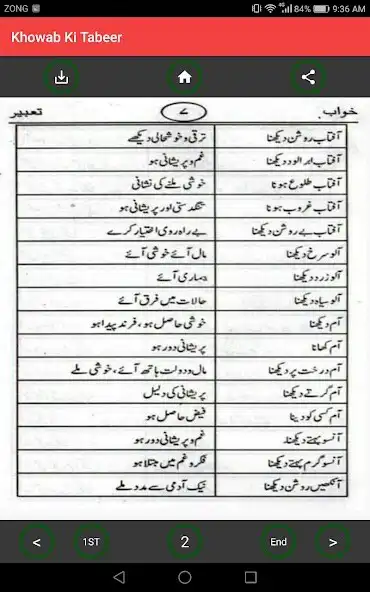 ZONG 84% 9:36 AM
Khowab KI Tabeer
خواب. ۷ تعبیر
آفتاب روشن دیکھنا ترقی و خوشحالی دیکھے
آفتاب ابر آلود دیکھنا غم و پریشانی ہو
آفتاب طلوع ہونا خوشی ملنے کی نشانی
آفتاب غروب ہونا تنگدستی اور پریشانی ہو
آفتاب بے روشن دیکھنا بے راہ روی اختیار کرے
آلو سرخ دیکھنا مال آئے خوشی آئے
آلو زرد دیکھنا بیماری آئے
آلو سیاہ دیکھنا حالات میں فرق آئے
آم دیکھنا خوشی حاصل ہو، فرزند پیدا ہو
آم کھانا پریشانی دور ہو
آم درخت پر دیکھنا مال و دولت ہاتھ آئے، خوشی ملے
آم گرتے دیکھنا پریشانی کی دلیل
آم کسی کو دینا فیض حاصل ہو
آنسو بہتے دیکھنا غم و پریشانی دور ہو
آنسو گرم بہتے دیکھنا فکر و غم میں مبتلا ہو
آنکھیں روشن دیکھنا نیک آدمی سے مدد ملے
< 1ST 2 End >